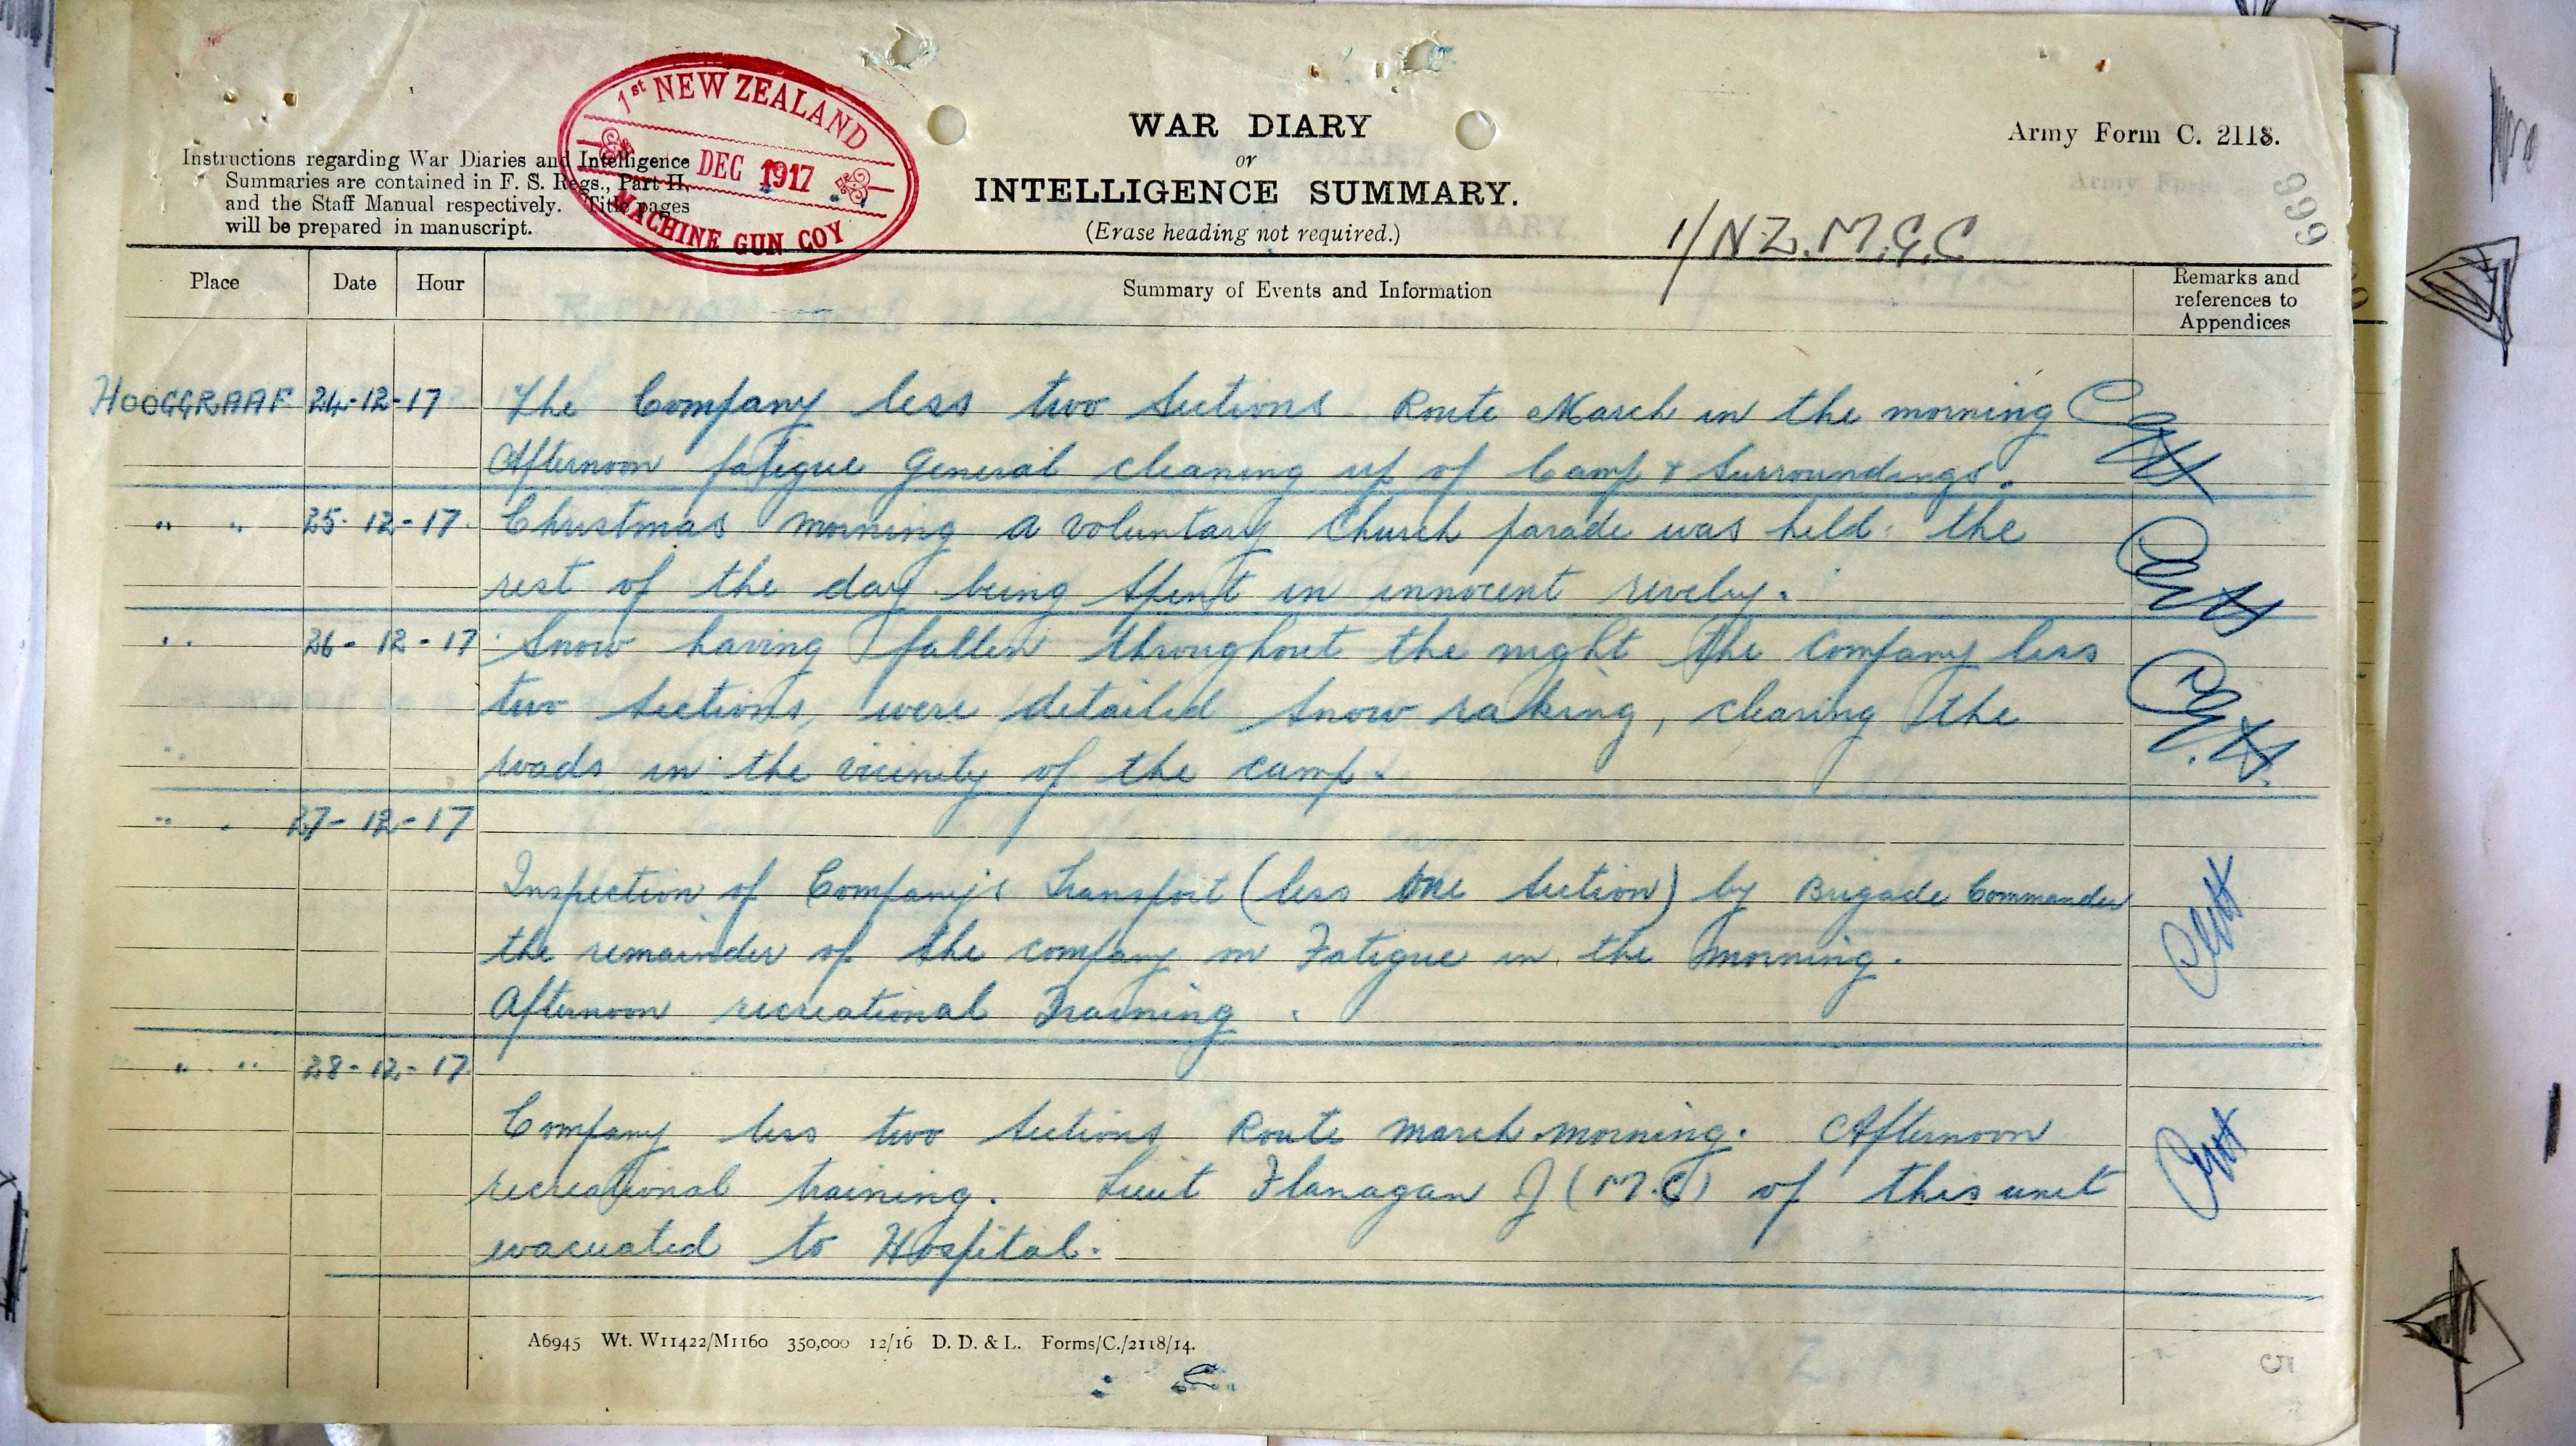 1st NEW ZEALAND
DEC 1917
MACHINE GUN COY
Instructions regarding War Diaries and Intelligence
Summaries are contained in F. S. Regs., Part II,
and the Staff Manual respectively. Title pages
will be prepared in manuscript.
WAR DIARY
or
INTELLIGENCE SUMMARY.
(Erase heading not required.)
Army Form C. 2118.
999
1/NZ.M.G.C
Place Date Hour Summary of Events and Information Remarks and
references to
Appendices
HOOGGRAAF 24-12-17 The Company less two Sections Route March in the morning
Afternoon fatigue General cleaning up of Camp & Surroundings.
" " 25-12-17. Christmas morning a voluntary Church parade was held. the
rest of the day being spent in innocent revelry.
" 26-12-17 Snow having fallen throughout the night the Company less
two Sections, were detailed snow raking, clearing the
roads in the vicinity of the camp.
" " 27-12-17
Inspection of Company's Transport (less one Section) by Brigade Commander
the remainder of the company on Fatigue in the morning.
Afternoon recreational Training.
" " 28-12-17
Company less two Sections Route march morning. Afternoon
recreational training. Lieut Flanagan J (M.C) of this unit
evacuated to Hospital.
A6945 Wt. W11422/M1160 350,000 12/16 D. D. & L. Forms/C./2118/14.
5